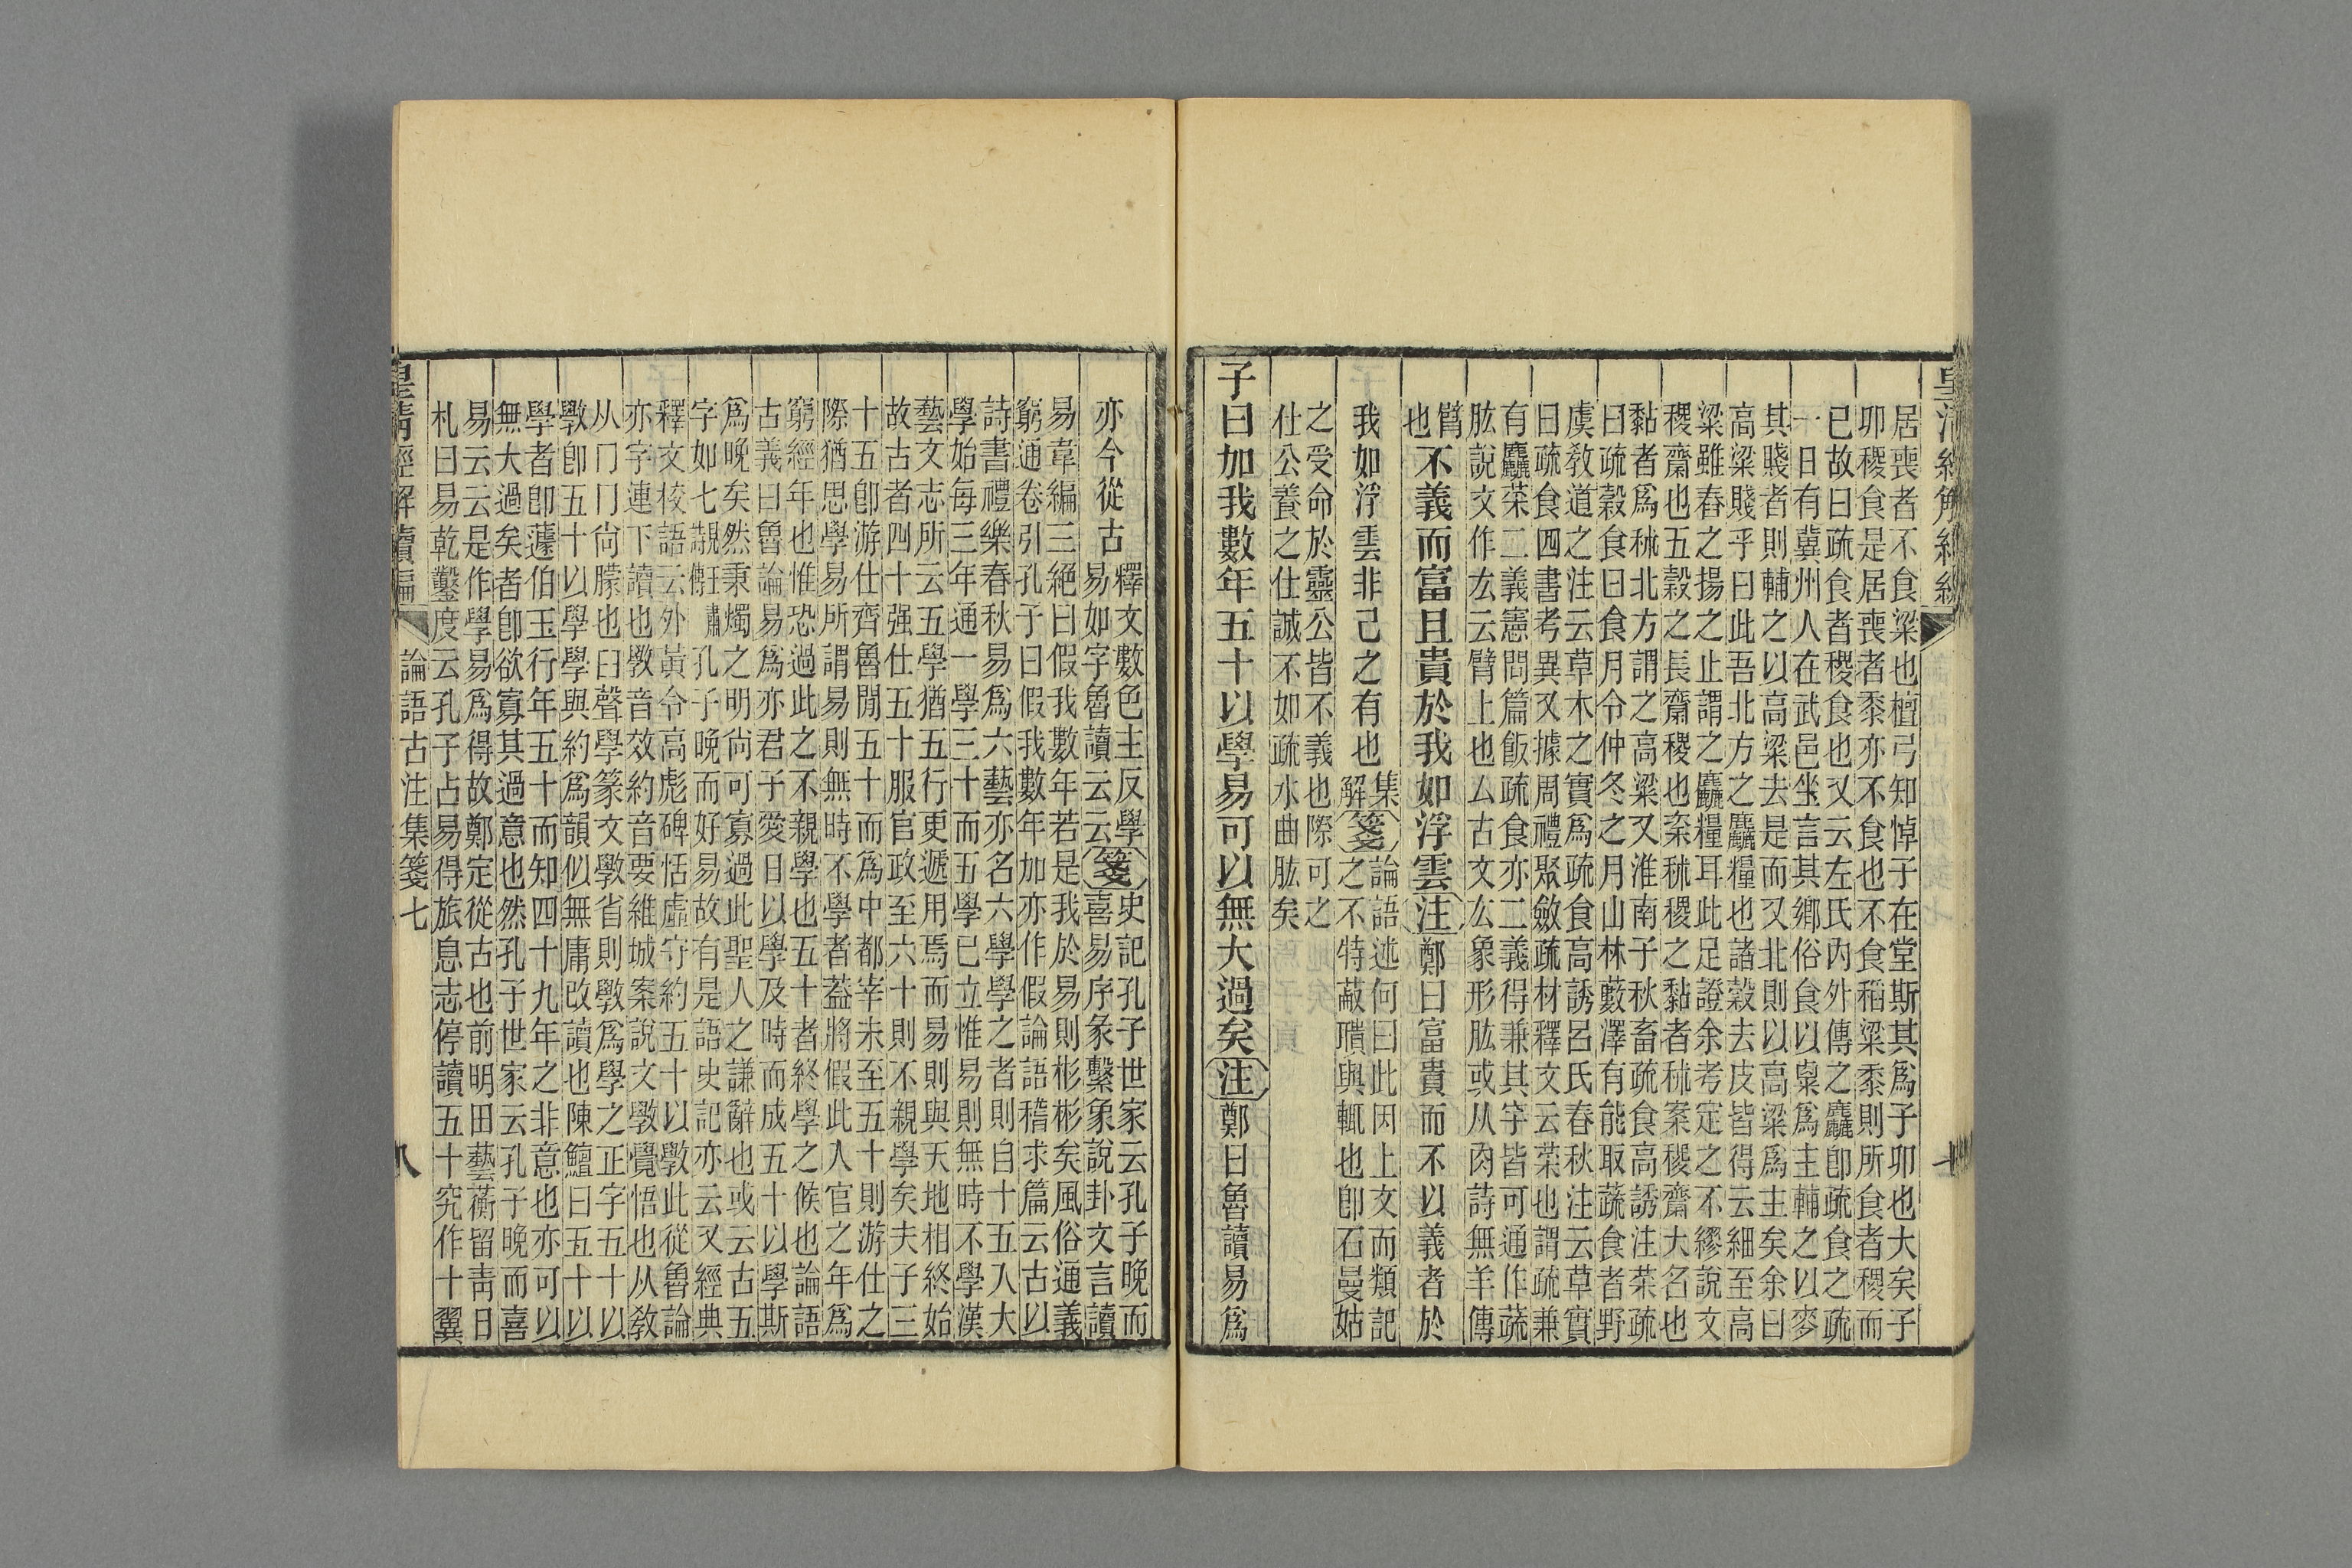 居喪者不食粱也檀弓知悼子在堂斯其爲子卯也大矣子
卯稷食是居喪者黍亦不食也不食稻粱黍則所食者稷而
已故曰疏食者稷食也又云左氏內外傳之麤卽疏食之疏
一日有冀州人在武邑坐言其鄉俗食以稟爲主輔之以麥
其賤者則輔之以高粱去是而又北則以高粱爲主矣余曰
高粱賤乎曰此吾北方之麤糧也諸穀去皮皆得云細至高
粱雖舂之揚之止謂之麤糧耳此足證余考定之不繆說文
稷齋也五穀之長齋稷也秫稷之黏者秫案稷齋大名也
黏者爲秫北方謂之高粱又淮南子秋畜疏食高誘注菜疏
曰疏穀食曰食月令仲冬之月山林藪澤有能取蔬食者野
虞敎道之注云草木之實爲疏食高誘呂氏春秋注云草實
曰疏食四書考異又據周禮聚斂疏材釋文云菜也謂疏兼
有麤菜二義憲問篇飯疏食亦二義得兼其字皆可通作蔬
肱說文作厷云臂上也厶古文厷象形肱或从肉詩無羊傳
也不義而富且貴於我如浮雲注鄭曰富貴而不以義者於
我如浮雲非己之有也集解箋論語述何曰此因上文而類記
之不特蔽聵與輒也卽石曼姑
之受命於靈公皆不義也際可之
仕公養之仕誠不如疏水曲肱矣
子曰加我數年五十以學易可以無大過矣注鄭曰魯讀易爲
亦今從古釋文數色主反學
易如字魯讀云云箋史記孔子世家云孔子晚而喜易序彖繫象說卦文言讀
易韋編三絕曰假我數年若是我於易則彬彬矣風俗通義
窮通卷引孔子曰假我數年加亦作假論語稽求篇云古以
詩書禮樂春秋易爲六藝亦名六學學之者則自十五入大
學始每三年通一學三十而五學已立惟易則無時不學漢
藝文志所云五學猶五行更遞用焉而易則與天地相終始
故古者四十强仕五十服官政至六十則不親學矣夫子三
十五卽游仕齊魯閒五十而爲中都宰未至五十則游仕之
際猶思學易所謂易則無時不學者蓋將假此入官之年爲
窮經年也惟恐過此之不親學也五十者終學之候也論語
古義曰魯論易爲亦君子愛日以學及時而成五十以學斯
爲晚矣然秉燭之明尙可寡過此聖人之謙辭也或云古五
字如七孔子晚而好易故有是語史記亦云又經典
釋文校語云外黃令高彪碑恬虛守約五十以斆此從魯論
亦字連下讀也斆音效約音要維城案說文斆覺悟也从敎
从冂冂尙矇也臼聲學篆文斆省則斆爲學之正字五十以
斆卽五十以學學與約爲韻似無庸改讀也陳鱣曰五十以
學者卽蘧伯玉行年五十而知四十九年之非意也亦可以
無大過矣者卽欲寡其過意也然孔子世家云孔子晚而喜
易云云是作學易爲得故鄭定從古也前明田藝蘅留靑日
札曰易乾鑿度云孔子占易得旅息志停讀五十究作十翼
皇淸經解續編
論語古注集箋七
八